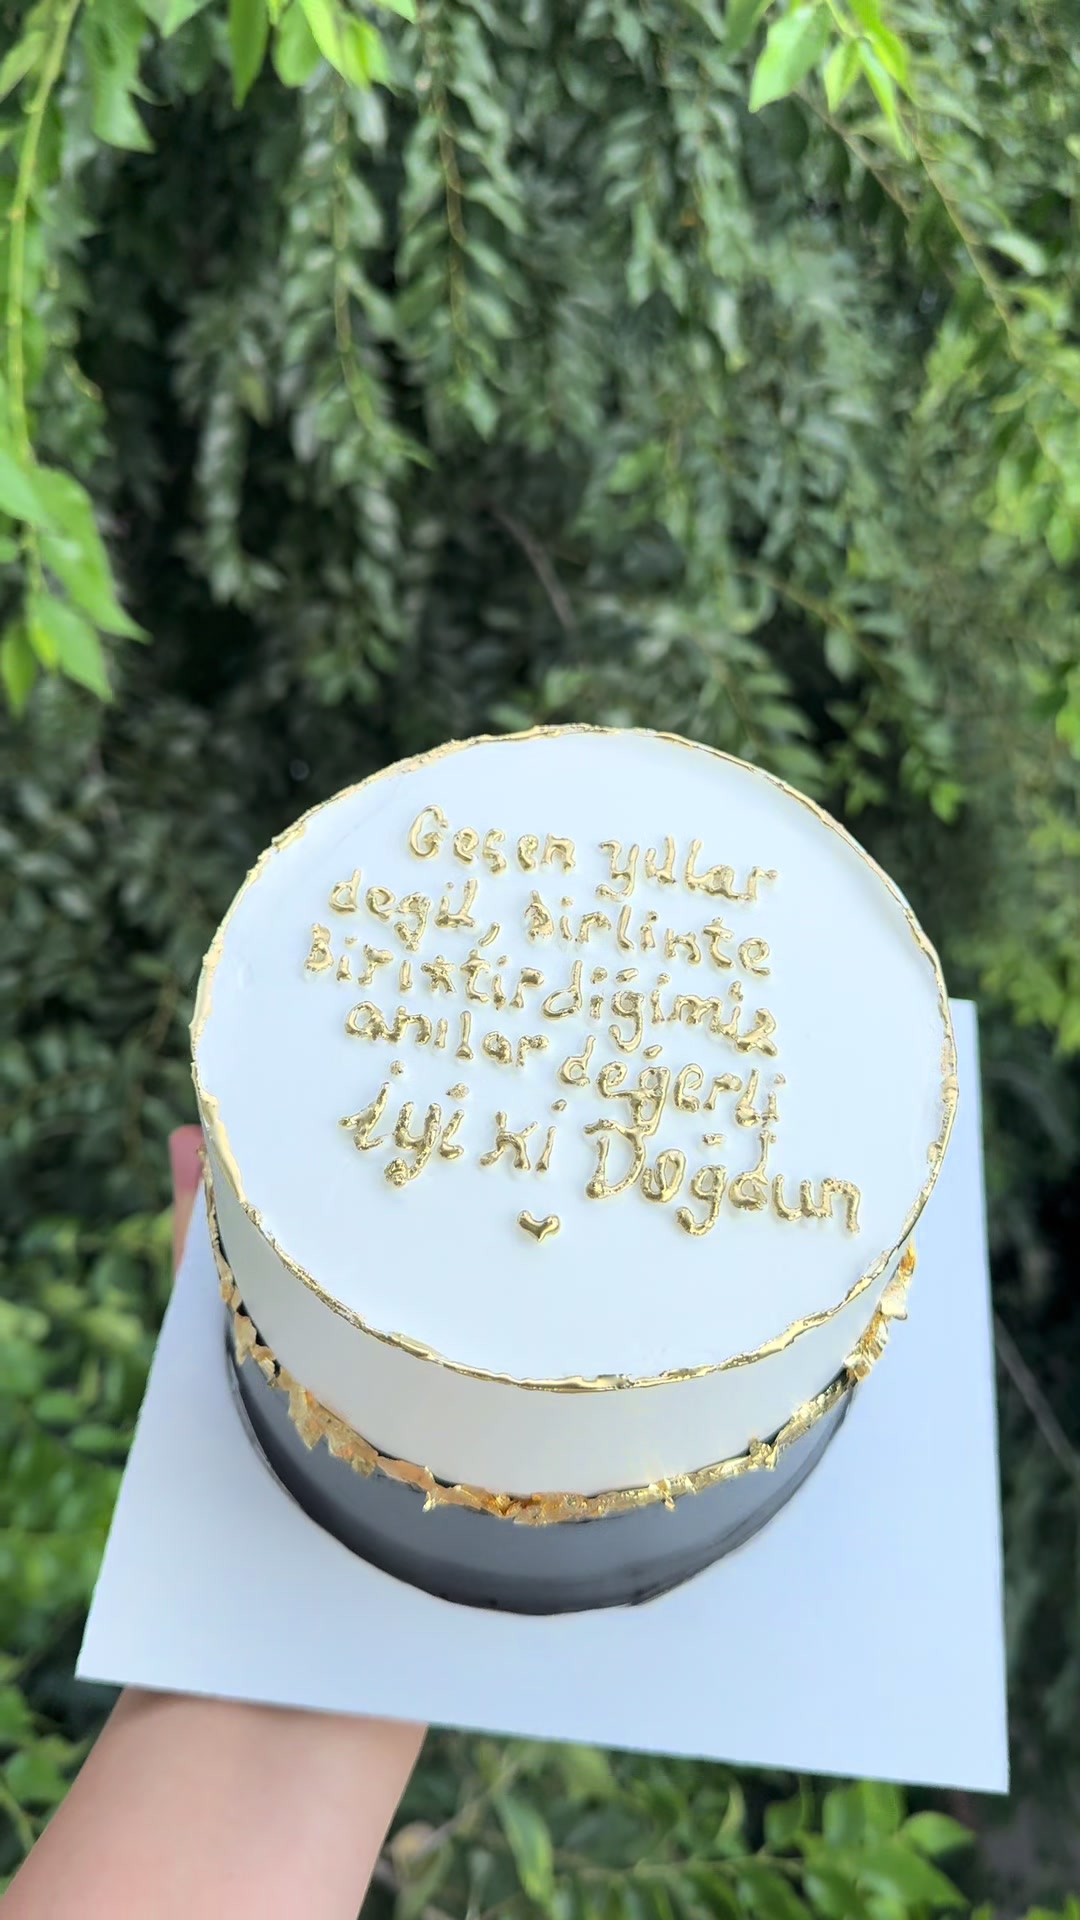 Geçen yıllar
değil, Birlinte
Biriktirdiğimiz
anılar değerli
iyi ki Doğdun